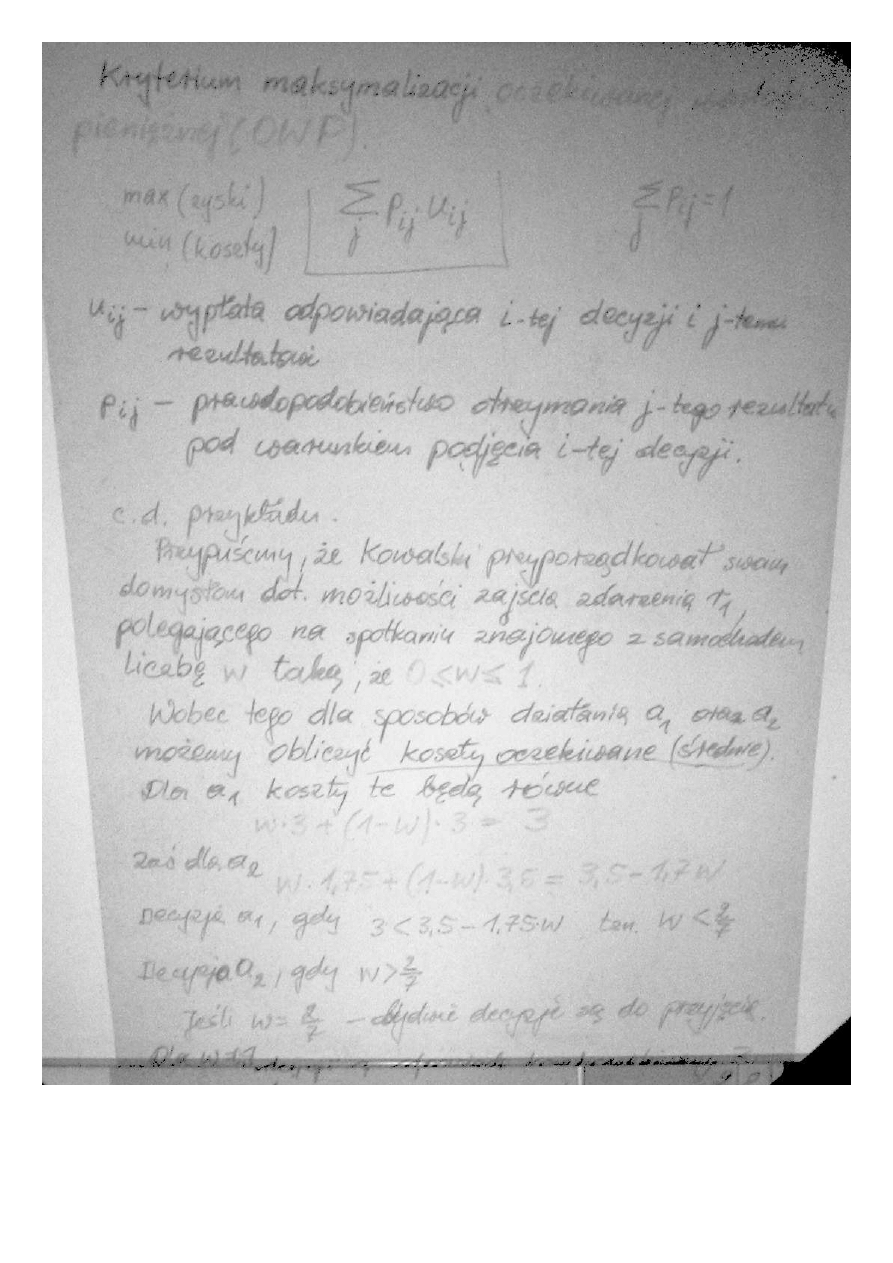 Kryterium maksymalizacji oczekiwanej
pieniężnej (OWP).
max (zyski)
min (koszty)
∑ j p_ij u_ij
∑ j p_ij = 1
u_ij – wypłata odpowiadająca i-tej decyzji i j-temu
rezultatowi
p_ij – prawdopodobieństwo otrzymania j-tego rezultatu
pod warunkiem podjęcia i-tej decyzji.
c.d. przykładu.
Przypuśćmy, że Kowalski przyporządkował swoim
domysłom dot. możliwości zajścia zdarzenia r_1,
polegającego na spotkaniu znajomego z samochodem
liczbę w taką, że 0 ≤ w ≤ 1.
Wobec tego dla sposobów działania a_1 oraz a_2
możemy obliczyć koszty oczekiwane (średnie).
Dla a_1 koszty te będą równe
w·3 + (1-w)·3 = 3
zaś dla a_2
w·1,75 + (1-w)·3,5 = 3,5 - 1,7w
Decyzja a_1, gdy 3 < 3,5 - 1,75·w tzn. w < 2/7
Decyzja a_2, gdy w > 2/7
Jeśli w = 2/7 – obydwie decyzje są do przyjęcia.
Dla